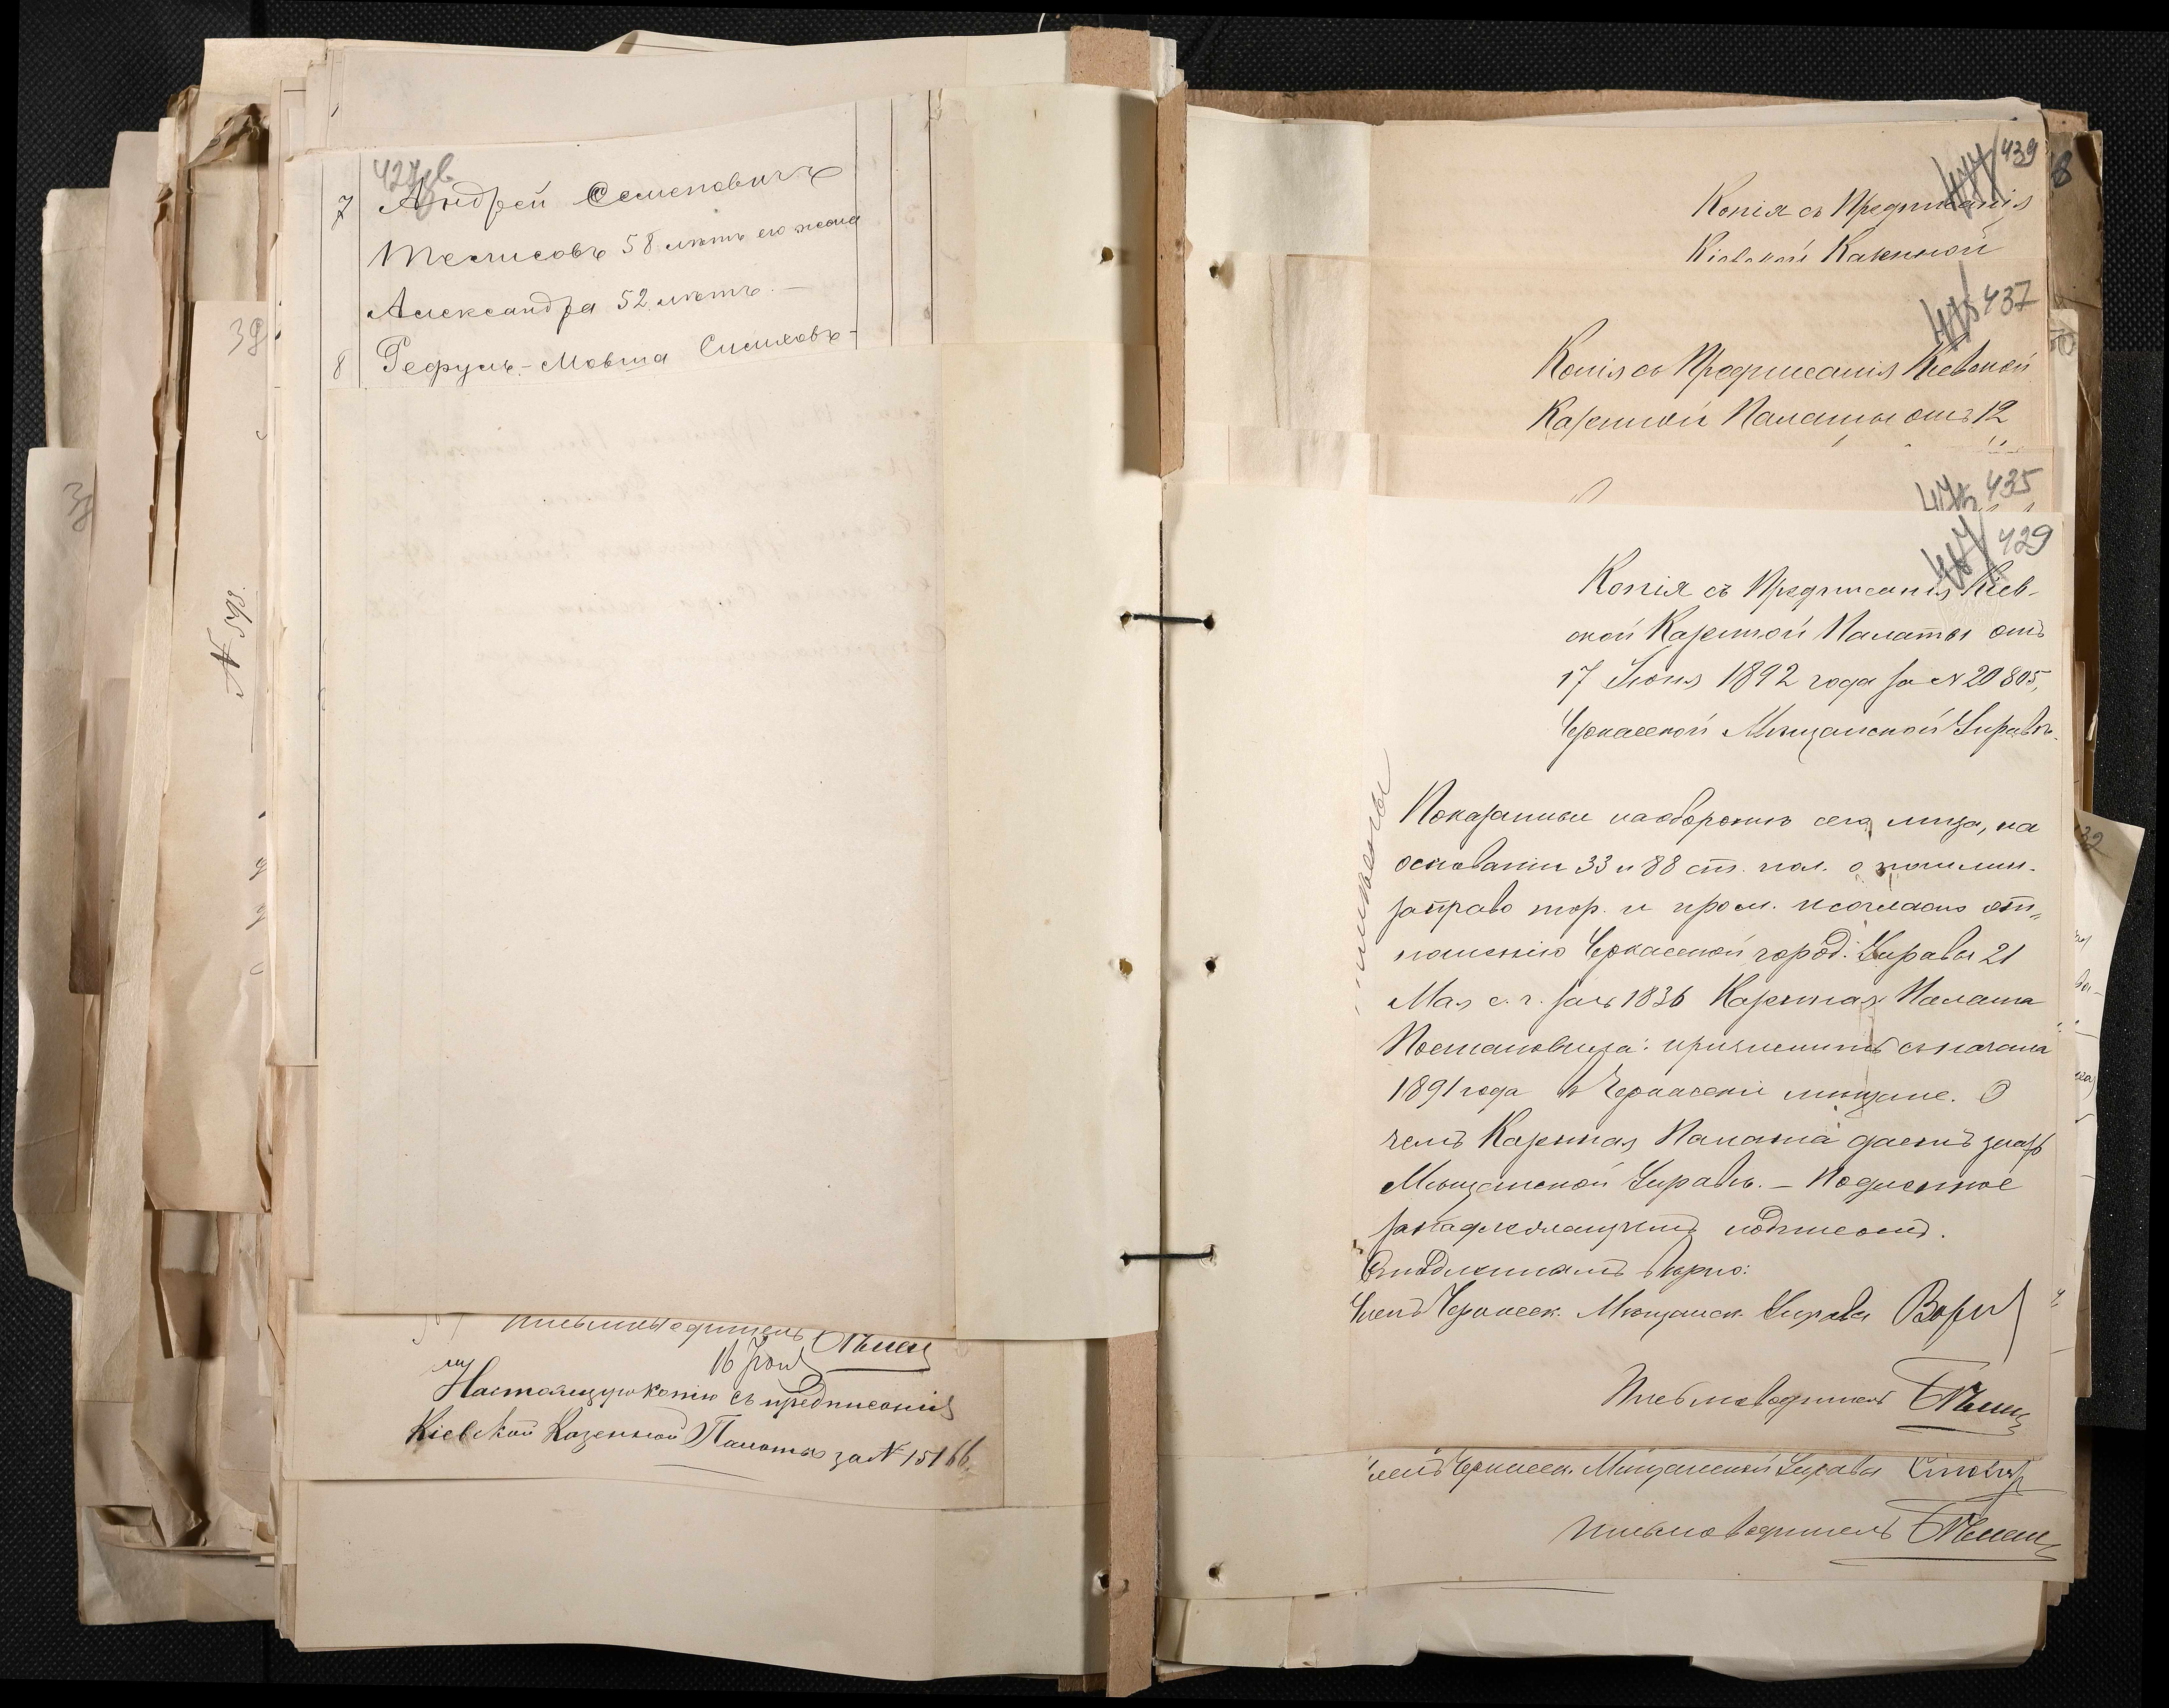 7 Андрей Семеновичъ
Тесмисовъ 58 лѣтъ его жена
Александра 52 лѣтъ. —
8 Рефулъ-Мовша
Письмоводитель
Настоящую копію съ предписанія
Кіевской Казенной Палаты за № 15166.
39
№ 598.
439
Копія съ Предписанія
Кіевской Казенной
437
Копія съ Предписанія Кіевской
Казенной Палаты отъ 12
435
429
Копія съ Предписанія Кіев-
ской Казенной Палаты отъ
17 Іюня 1892 года за № 20805,
Черкасской Мѣщанской Управѣ.
Показанныя на оборотѣ сего лица, на
основаніи 33 и 88 ст. пол. о пошлин.
за право тор. и пром. и согласно от-
ношенію Черкасской город. Управы 21
Мая с. г. за № 1836 Казенная Палата
Постановила: причислить съ начала
1891 года въ Черкасскіе мѣщане. О
чемъ Казенная Палата даетъ знать
Мѣщанской Управѣ. — Подлинное
за надлежащимъ подписомъ.
Съ подлиннымъ вѣрно:
Членъ Черкасск. Мѣщанск. Управы
Письмоводитель
членъ Черкасск. Мѣщанской Управы
Письмоводитель